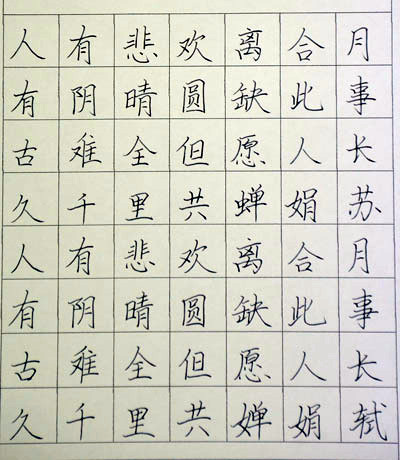 人有悲欢离合月
有阴晴圆缺此事
古难全但愿人长
久千里共蝉娟苏
人有悲欢离合月
有阴晴圆缺此事
古难全但愿人长
久千里共婵娟轼